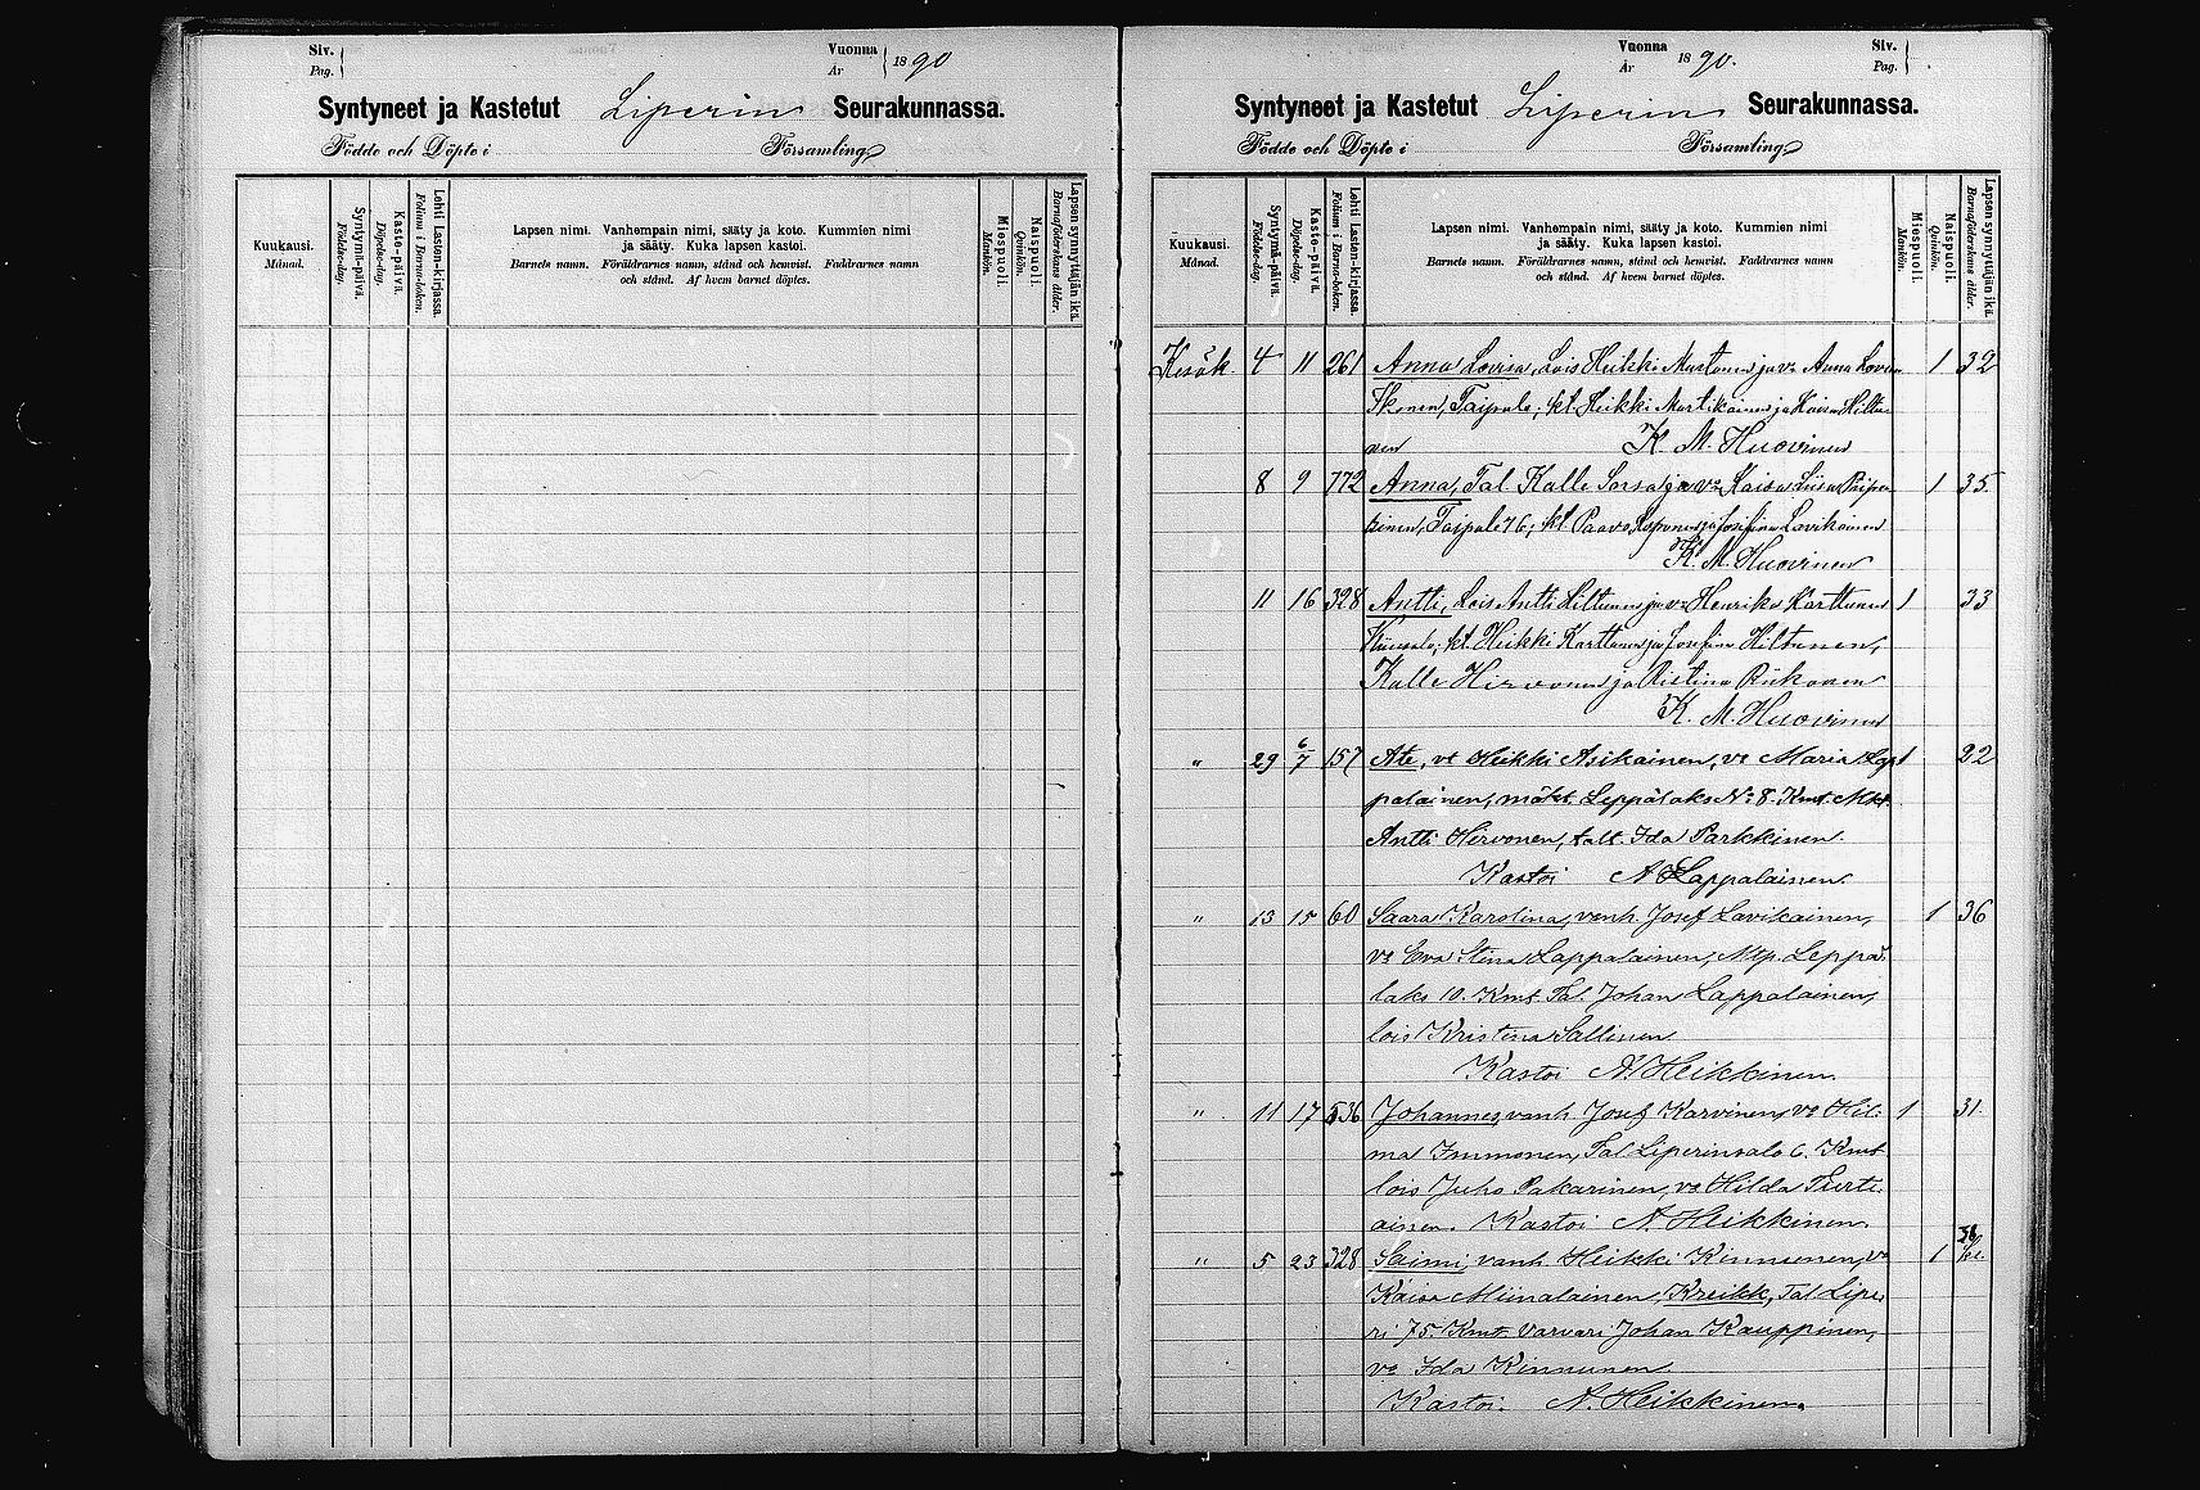 Siv.
Pag.
Vuonna
År
1890
Syntyneet ja Kastetut Liperin Seurakunnassa.
Födde och Döpte i Församling
Kuukausi.
Månad.
Syntymä-päivä.
Födelse-dag.
Kaste-päivä.
Döpelse-dag.
Lehti Lasten-kirjassa.
Folium i Barna-boken.
Lapsen nimi. Vanhempain nimi, sääty ja koto. Kummien nimi
ja sääty. Kuka lapsen kastoi.
Barnets namn. Föräldrarnes namn, stånd och hemvist. Faddrarnes namn
och stånd. Af hvem barnet döptes.
Miespuoli.
Mankön.
Naispuoli.
Qvinkön.
Lapsen synnyttäjän ikä.
Barnaföderskans ålder.
Vuonna
År
1890.
Siv.
Pag.
Syntyneet ja Kastetut Liperin Seurakunnassa.
Födde och Döpte i Församling
Kuukausi.
Månad.
Syntymä-päivä.
Födelse-dag.
Kaste-päivä.
Döpelse-dag.
Lehti Lasten-kirjassa.
Folium i Barna-boken.
Lapsen nimi. Vanhempain nimi, sääty ja koto. Kummien nimi
ja sääty. Kuka lapsen kastoi.
Barnets namn. Föräldrarnes namn, stånd och hemvist. Faddrarnes namn
och stånd. Af hvem barnet döptes.
Miespuoli.
Mankön.
Naispuoli.
Qvinkön.
Lapsen synnyttäjän ikä.
Barnaföderskans ålder.
Kesäk. 4 11 261 Anna Lovisa, Lois Heikki ja vo Anna 1 32
Ikonen, Taipale; kt. Heikki Martikainen ja Kaisa Hiltu
nen K. M. Huovinen
8 9 772 Anna, Tal. Kalle Sorsa ja vo Kaisa Liisa 1 35.
Taipale 76; kt Paavo ja Josefina Lavikainen
K. M. Huovinen
11 16 328 Antti, Lois Antti Hiltunen ja vo Henrika Karttunen 1 33
kt. Heikki Karttunen ja Josefina Hiltunen,
Kalle Hirvonen ja Ristina Riikonen
K. M. Huovinen
" 29 6/7 157 Ate, vt Heikki Asikainen, vo Maria Lap 1 22
palainen, mökt. Leppälaks No 8. Kmt. Mkt.
Antti Hirvonen, talt. Ida Parkkinen.
Kastoi A Lappalainen.
" 13 15 60 Saara Karolina, vanh. Josef Lavikainen, 1 36
vo Eva Stina Lappalainen, Mtp. Leppä
laks 10. Kmt. Tal. Johan Lappalainen,
lois Kristina Sallinen
Kastoi A. Heikkinen.
" 11 17 536 Johannes, vanh. Josef Karvinen, vo Hil- 1 31.
ma Immonen, Tal Liperinsalo 6. Kmt
lois Juho Pakarinen, vo Hilda Turti
ainen. Kastoi A. Heikkinen.
" 5 23 328 Saimi, vanh. Heikki Kinnunen, vo 1
Kaisa Miinalainen, Kreikk, Tal Lipe
ri 75. Kmt. Varvari Johan Kauppinen,
vo Ida Kinnunen.
Kastoi. A. Heikkinen.